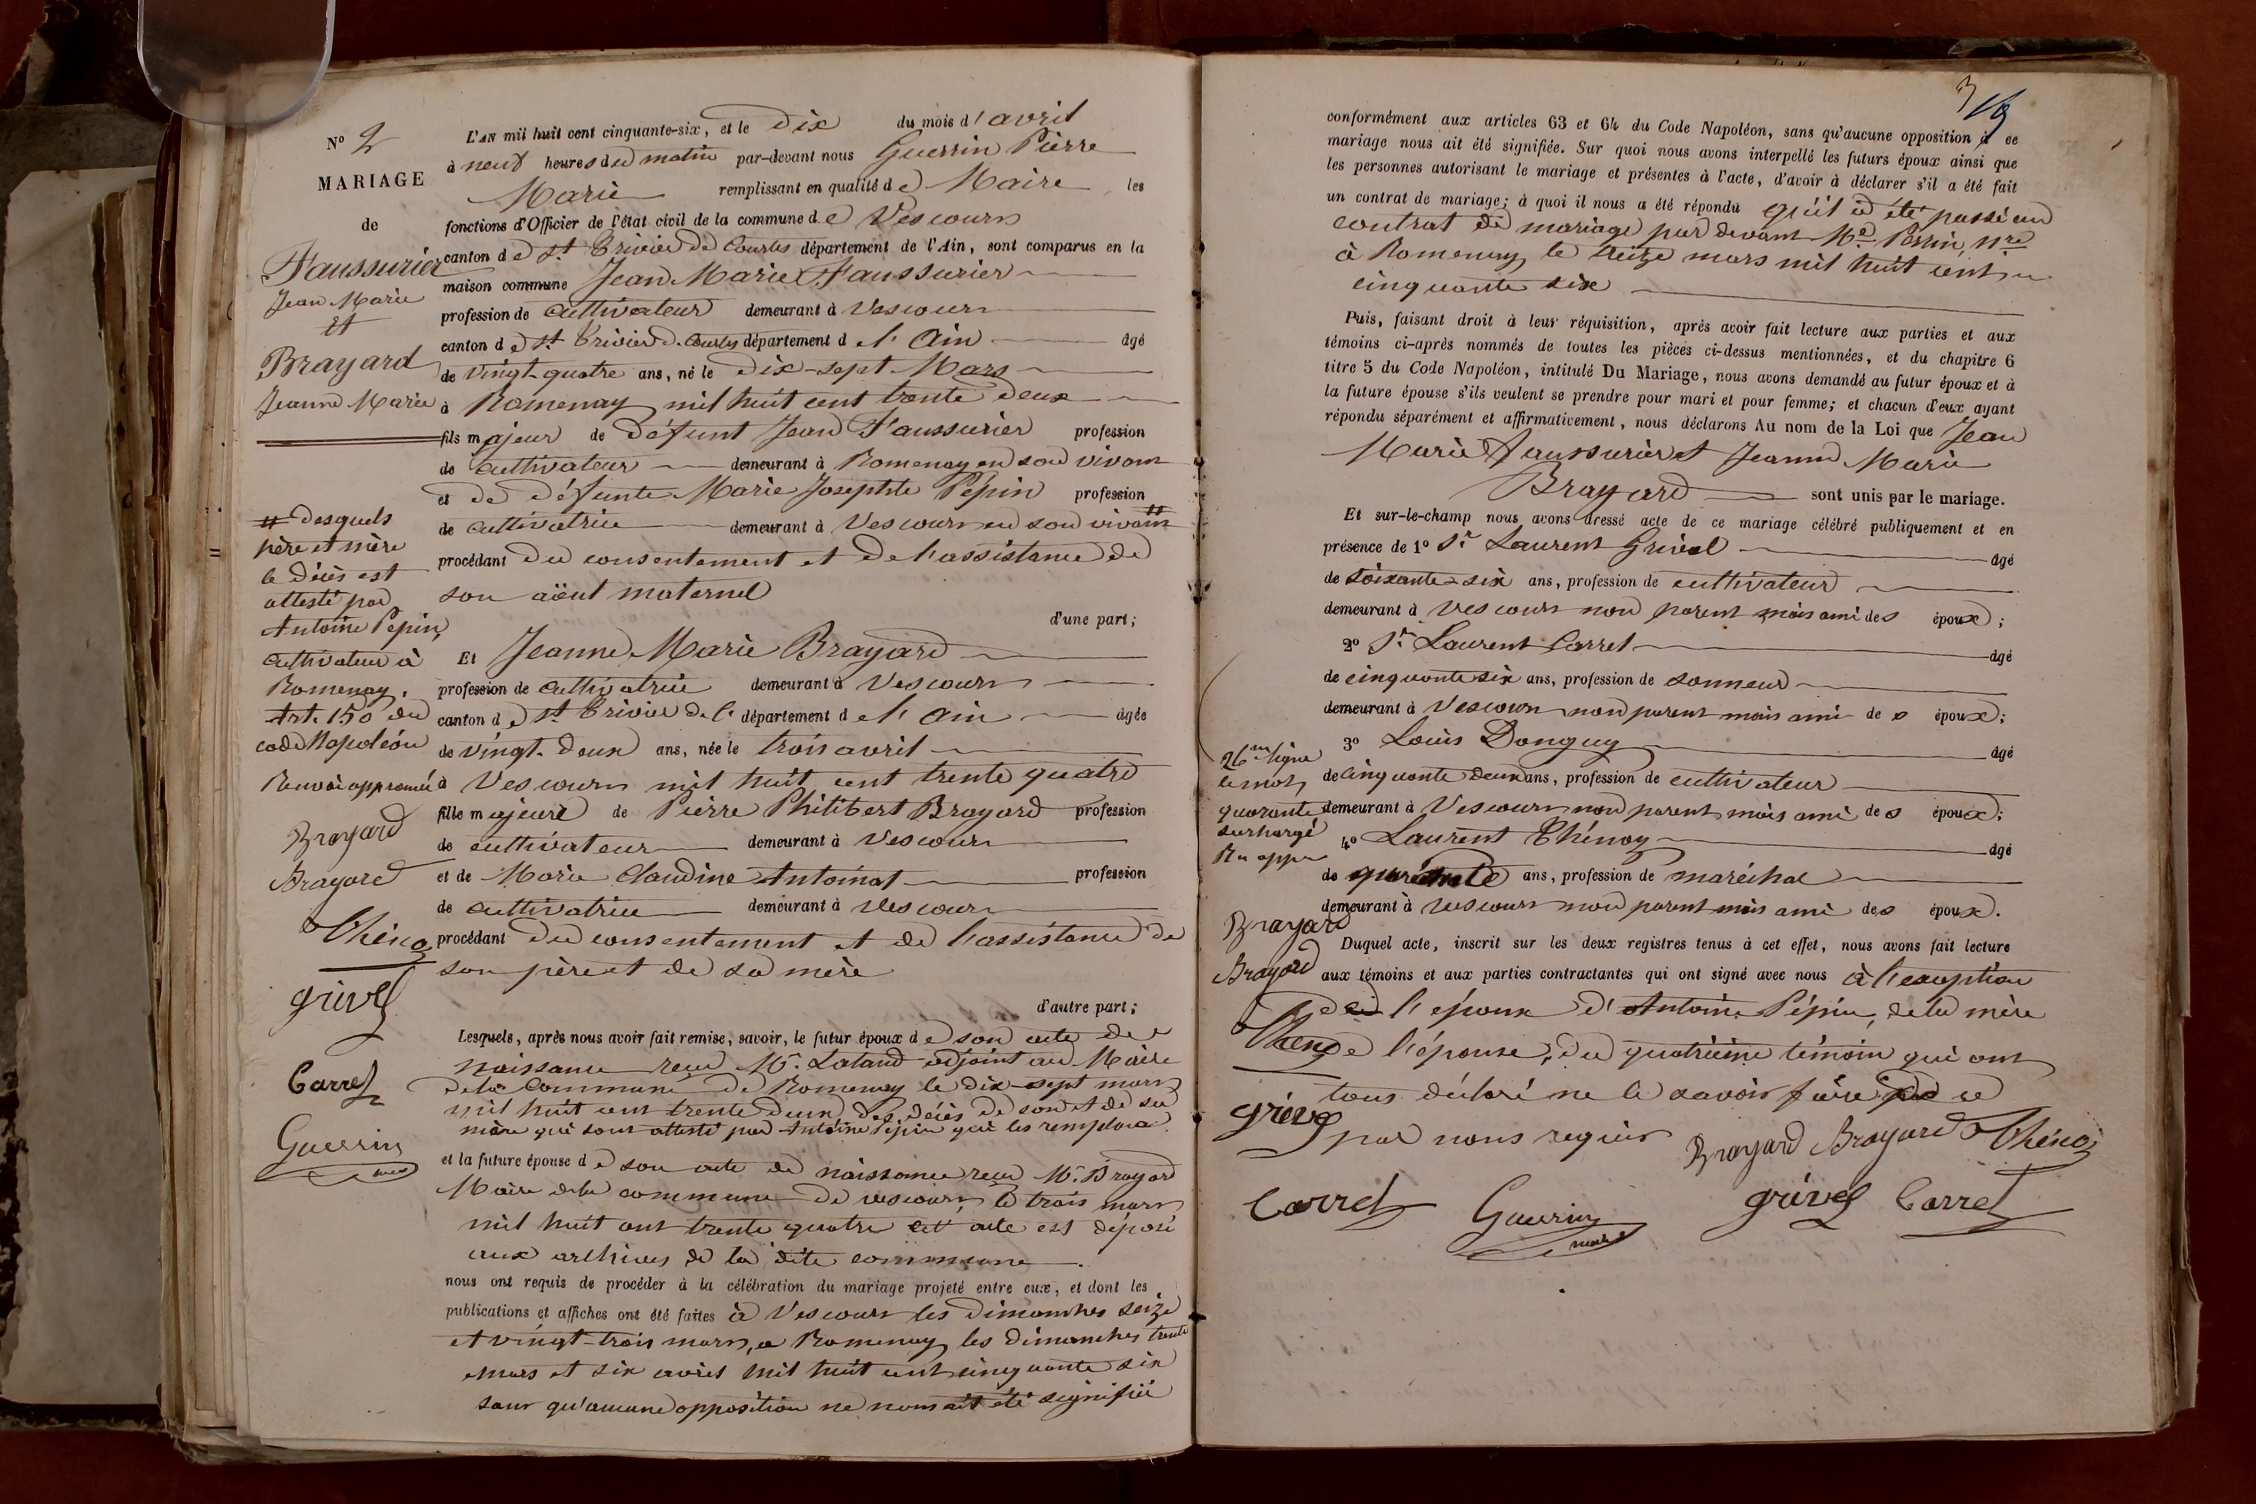 N° 2
MARIAGE
de
Faussurier
Jean Marie
et
Brayard
Jeanne Marie
L'AN mil huit cent cinquante-six, et le dix du mois d'avril
à neuf heures du matin par-devant nous Guerrin Pierre
Marie remplissant en qualité de Maire les
fonctions d'Officier de l'état civil de la commune de Vescours
canton de St Trivier de Courtes département de l'Ain, sont comparus en la
maison commune Jean Marie Faussurier
profession de cultivateur demeurant à Vescours
canton de St Trivier d. Courtes département de l'Ain âgé
de vingt-quatre ans, né le dix-sept Mars
à Romenay mil huit cent trente deux
fils majeur de défunt Jean Faussurier profession
de cultivateur demeurant à Romenay en son vivant
et de défunte Marie Josephte Pépin profession
de cultivatrice demeurant à Vescours en son vivant #
procédant du consentement et de l'assistance de
son aïeul maternel
d'une part;
Et Jeanne Marie Brayard
profession de cultivatrice demeurant à Vescours
canton de St Trivier de C. département de l'Ain âgée
de vingt-deux ans, née le trois avril
à Vescours mil huit cent trente quatre
fille majeure de Pierre Philibert Brayard profession
de cultivateur demeurant à Vescours
et de Marie Claudine Antoinat profession
de cultivatrice demeurant à Vescours
procédant du consentement et de l'assistance de
son père et de sa mère
d'autre part;
Lesquels, après nous avoir fait remise, savoir, le futur époux de son acte de
naissance reçu Mr. Lataud adjoint au Maire
de la Commune de Romenay le dix-sept mars
mil huit cent trente deux, des décès de son et de sa
mère qui sont attesté par Antoine Pépin qui les remplace
et la future épouse de son acte de naissance reçu Mr. Brayard
Maire de la commune de Vescours, le trois mars
mil huit cent trente quatre cet acte est déposé
aux archives de la dite commune.
nous ont requis de procéder à la célébration du mariage projeté entre eux, et dont les
publications et affiches ont été faites à Vescours les dimanches seize
et vingt-trois mars, a Romenay les dimanches trente
mars et six avril mil huit cent cinquante six
sans qu'aucune opposition ne nous ait été signifiée
# desquels
père et mère
le décès est
attesté par
Antoine Pepin,
cultivateur à
Romenay.
Art. 150 du
code Napoléon
Renvoi approuvé
Brayard
Brayard
Thénoz
grivel
Carrel
Guerrin
maire
3
conformément aux articles 63 et 64 du Code Napoléon, sans qu'aucune opposition à ce
mariage nous ait été signifiée. Sur quoi nous avons interpellé les futurs époux ainsi que
les personnes autorisant le mariage et présentes à l'acte, d'avoir à déclarer s'il a été fait
un contrat de mariage; à quoi il nous a été répondu qu'il a été passé un
contrat de mariage par devant Me Perrin nre
à Romenay le treize mars mil huit cent
cinquante six
Puis, faisant droit à leur réquisition, après avoir fait lecture aux parties et aux
témoins ci-après nommés de toutes les pièces ci-dessus mentionnées, et du chapitre 6
titre 5 du Code Napoléon, intitulé Du Mariage, nous avons demandé au futur époux et à
la future épouse s'ils veulent se prendre pour mari et pour femme; et chacun d'eux ayant
répondu séparément et affirmativement, nous déclarons Au nom de la Loi que Jean
Marie Faussurier et Jeanne Marie
Brayard sont unis par le mariage.
Et sur-le-champ nous avons dressé acte de ce mariage célébré publiquement et en
présence de 1° Sr Laurent Grivel âgé
de soixante-six ans, profession de cultivateur
demeurant à Vescours non parent mais ami des époux;
2° Sr Laurent Carrel âgé
de cinquante six ans, profession de sonneur
demeurant à Vescours non parent mais ami des époux;
3° Louis Donguy âgé
de cinquante deux ans, profession de cultivateur
demeurant à Vescours non parent mais ami des époux;
4° Laurent Thénoz âgé
de quarante ans, profession de maréchal
demeurant à Vescours non parent mais ami des époux.
Duquel acte, inscrit sur les deux registres tenus à cet effet, nous avons fait lecture
aux témoins et aux parties contractantes qui ont signé avec nous à l'exception
de l'époux d'Antoine Pépin, de la mère
de l'épouse, du quatrième témoin qui ont
tous déclaré ne le savoir faire de ce
par nous requis
26me ligne
le mot
quarante
surchargé
Brayard
Brayard
Thénoz
grivel
Carrel
Guerrin
maire
Brayard Brayard Thénoz
grivel Carrel